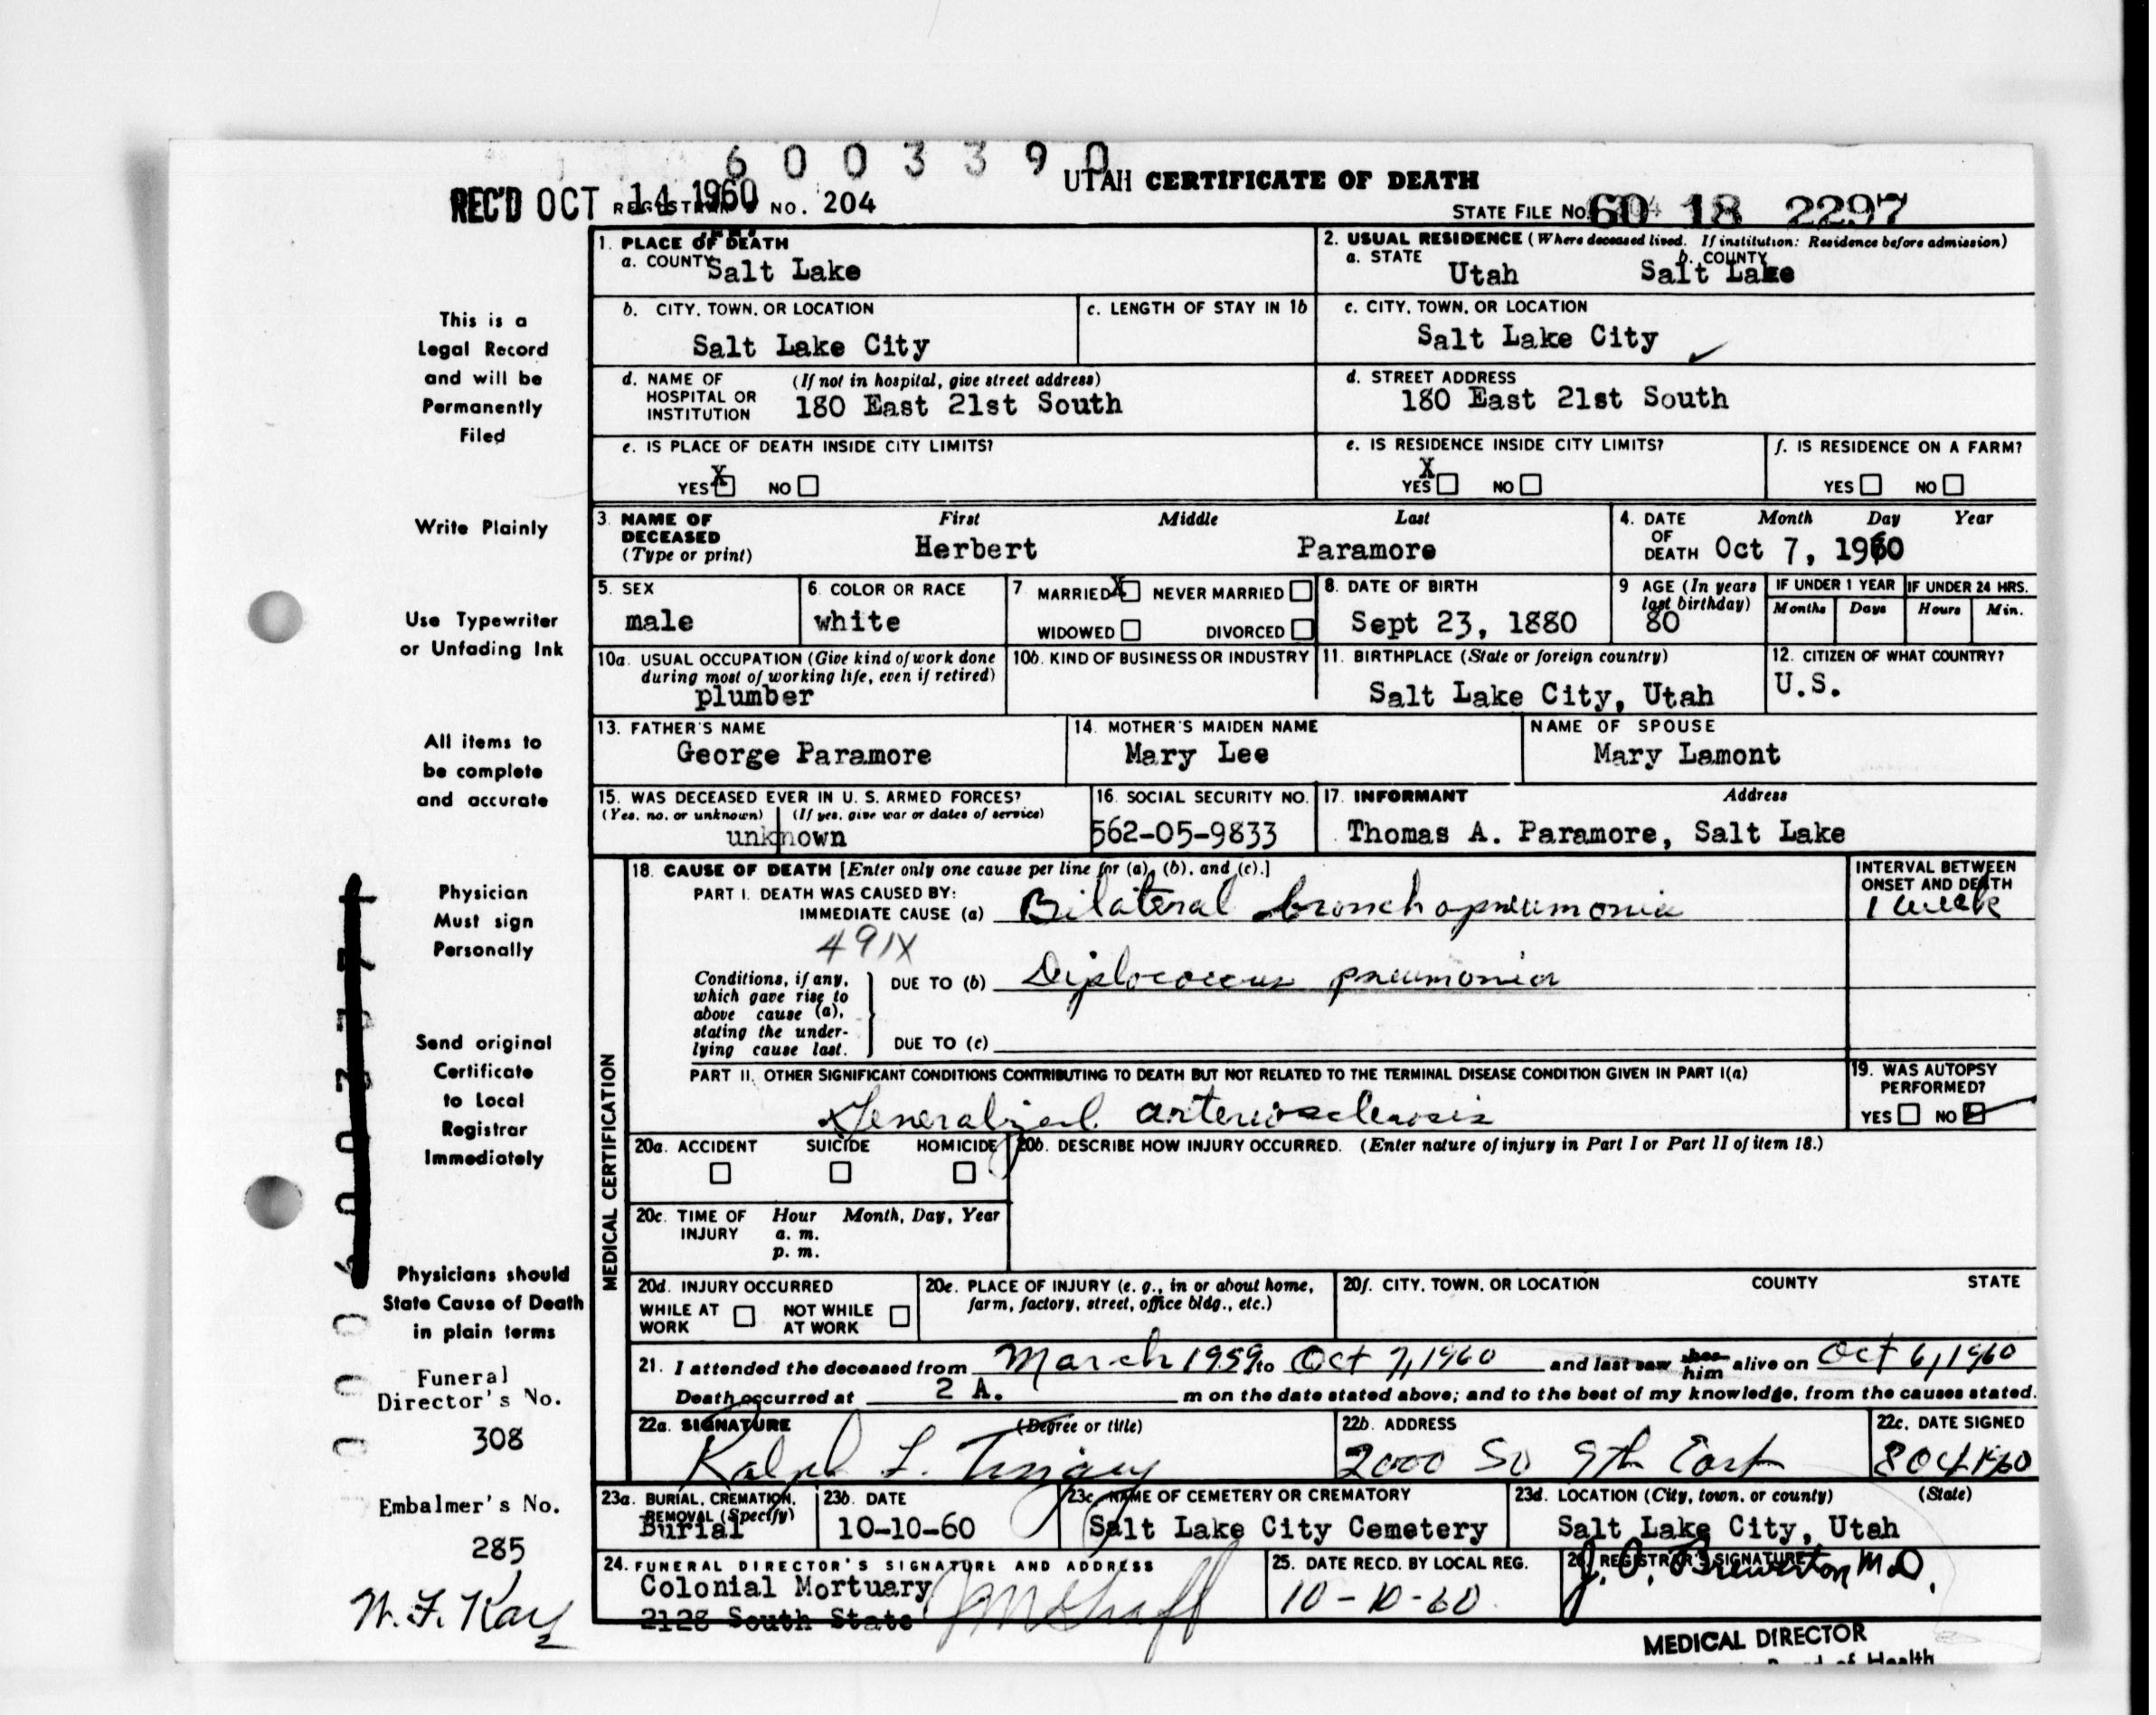 6 0 0 3 3 9 0
REC'D OCT 14 1960 REGISTRAR'S NO. 204
UTAH CERTIFICATE OF DEATH
STATE FILE NO. 60 18 2297
1. PLACE OF DEATH
a. COUNTY Salt Lake
2. USUAL RESIDENCE (Where deceased lived. If institution: Residence before admission)
a. STATE Utah b. COUNTY Salt Lake
b. CITY, TOWN, OR LOCATION Salt Lake City
c. LENGTH OF STAY IN 1b
c. CITY, TOWN, OR LOCATION Salt Lake City
d. NAME OF HOSPITAL OR INSTITUTION (If not in hospital, give street address) 180 East 21st South
d. STREET ADDRESS 180 East 21st South
e. IS PLACE OF DEATH INSIDE CITY LIMITS?
YES X NO
e. IS RESIDENCE INSIDE CITY LIMITS?
YES X NO
f. IS RESIDENCE ON A FARM?
YES NO
3. NAME OF DECEASED (Type or print) First Middle Last
Herbert Paramore
4. DATE OF DEATH Month Day Year
Oct 7, 1960
5. SEX male
6. COLOR OR RACE white
7 MARRIED X NEVER MARRIED
WIDOWED DIVORCED
8. DATE OF BIRTH Sept 23, 1880
9 AGE (In years last birthday) 80
IF UNDER 1 YEAR Months Days
IF UNDER 24 HRS. Hours Min.
10a. USUAL OCCUPATION (Give kind of work done during most of working life, even if retired) plumber
10b. KIND OF BUSINESS OR INDUSTRY
11. BIRTHPLACE (State or foreign country) Salt Lake City, Utah
12. CITIZEN OF WHAT COUNTRY? U.S.
13. FATHER'S NAME George Paramore
14. MOTHER'S MAIDEN NAME Mary Lee
NAME OF SPOUSE Mary Lamont
15. WAS DECEASED EVER IN U. S. ARMED FORCES?
(Yes, no, or unknown) (If yes, give war or dates of service)
unknown
16. SOCIAL SECURITY NO. 562-05-9833
17. INFORMANT Address
Thomas A. Paramore, Salt Lake
MEDICAL CERTIFICATION
18. CAUSE OF DEATH [Enter only one cause per line for (a), (b), and (c).]
PART I. DEATH WAS CAUSED BY:
IMMEDIATE CAUSE (a) Bilateral bronchopneumonia
INTERVAL BETWEEN ONSET AND DEATH
1 week
491X
Conditions, if any, which gave rise to above cause (a), stating the underlying cause last.
DUE TO (b) Diplococcus pneumonia
DUE TO (c)
PART II. OTHER SIGNIFICANT CONDITIONS CONTRIBUTING TO DEATH BUT NOT RELATED TO THE TERMINAL DISEASE CONDITION GIVEN IN PART I(a)
Generalized arteriosclerosis
19. WAS AUTOPSY PERFORMED?
YES NO
20a. ACCIDENT SUICIDE HOMICIDE
20b. DESCRIBE HOW INJURY OCCURRED. (Enter nature of injury in Part I or Part II of item 18.)
20c. TIME OF INJURY Hour Month, Day, Year
a. m.
p. m.
20d. INJURY OCCURRED
WHILE AT WORK NOT WHILE AT WORK
20e. PLACE OF INJURY (e. g., in or about home, farm, factory, street, office bldg., etc.)
20f. CITY, TOWN, OR LOCATION COUNTY STATE
21. I attended the deceased from March 1959 to Oct 7, 1960 and last saw her him alive on Oct 6, 1960
Death occurred at 2 A. m on the date stated above; and to the best of my knowledge, from the causes stated.
22a. SIGNATURE (Degree or title)
Ralph L. Tingey
22b. ADDRESS 2000 So 9th East
22c. DATE SIGNED 8 Oct 1960
23a. BURIAL, CREMATION, REMOVAL (Specify) Burial
23b. DATE 10-10-60
23c. NAME OF CEMETERY OR CREMATORY Salt Lake City Cemetery
23d. LOCATION (City, town, or county) (State)
Salt Lake City, Utah
24. FUNERAL DIRECTOR'S SIGNATURE AND ADDRESS
Colonial Mortuary
2128 South State
25. DATE RECD. BY LOCAL REG. 10-10-60
26. REGISTRAR'S SIGNATURE J. O. Brewerton M.D.
MEDICAL DIRECTOR
of Health
This is a
Legal Record
and will be
Permanently
Filed
Write Plainly
Use Typewriter
or Unfading Ink
All items to
be complete
and accurate
Physician
Must sign
Personally
Send original
Certificate
to Local
Registrar
Immediately
Physicians should
State Cause of Death
in plain terms
Funeral
Director's No.
308
Embalmer's No.
285
W. F. Kay